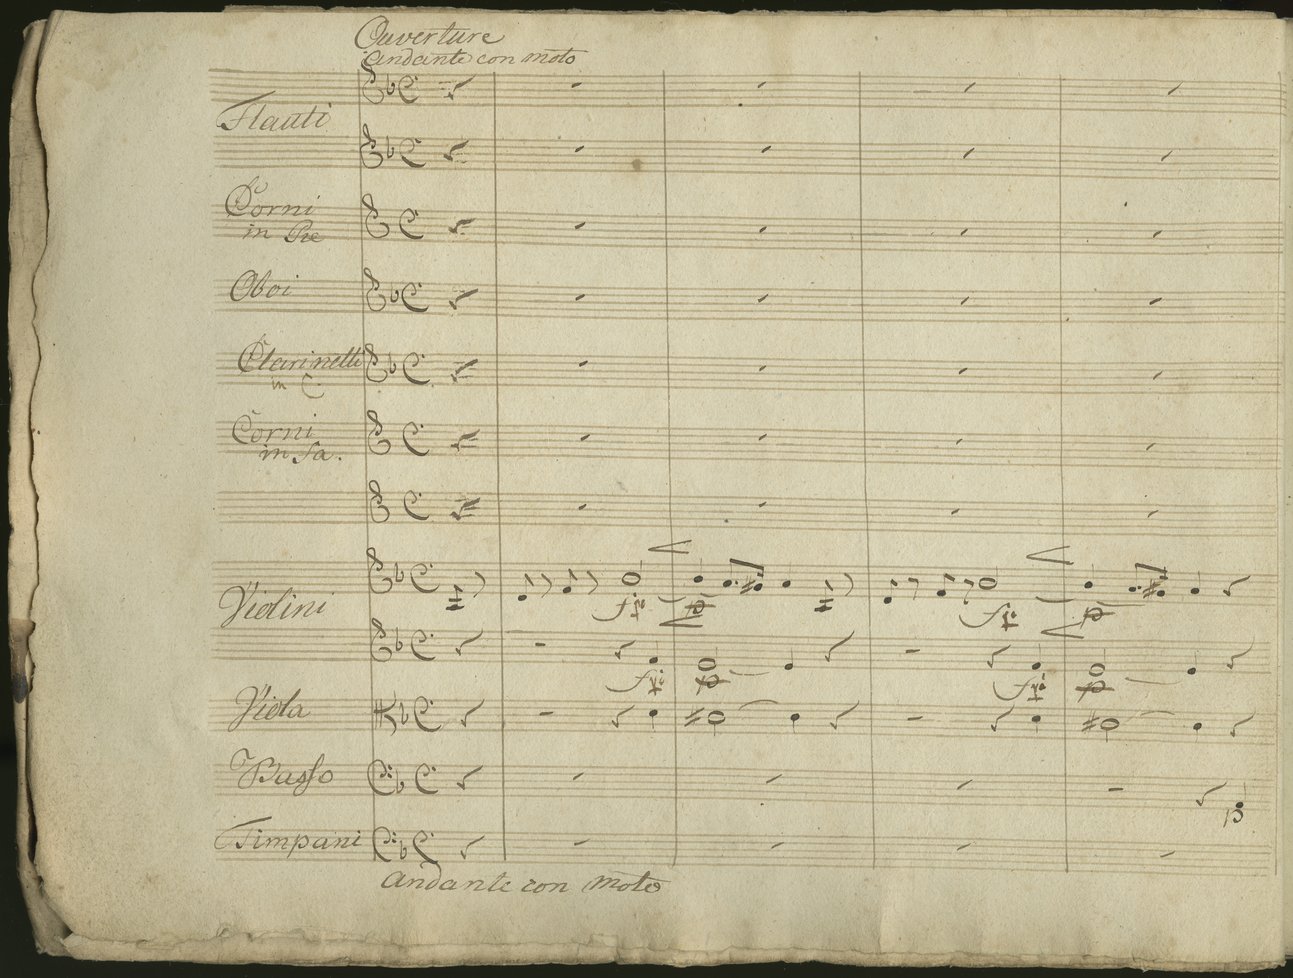 Ouverture
Andante con moto
Flauti
Corni
in Re
Oboi
Clarinetti
in C
Corni
in Fa.
Violini
Viola
Basso
Timpani
Andante con moto